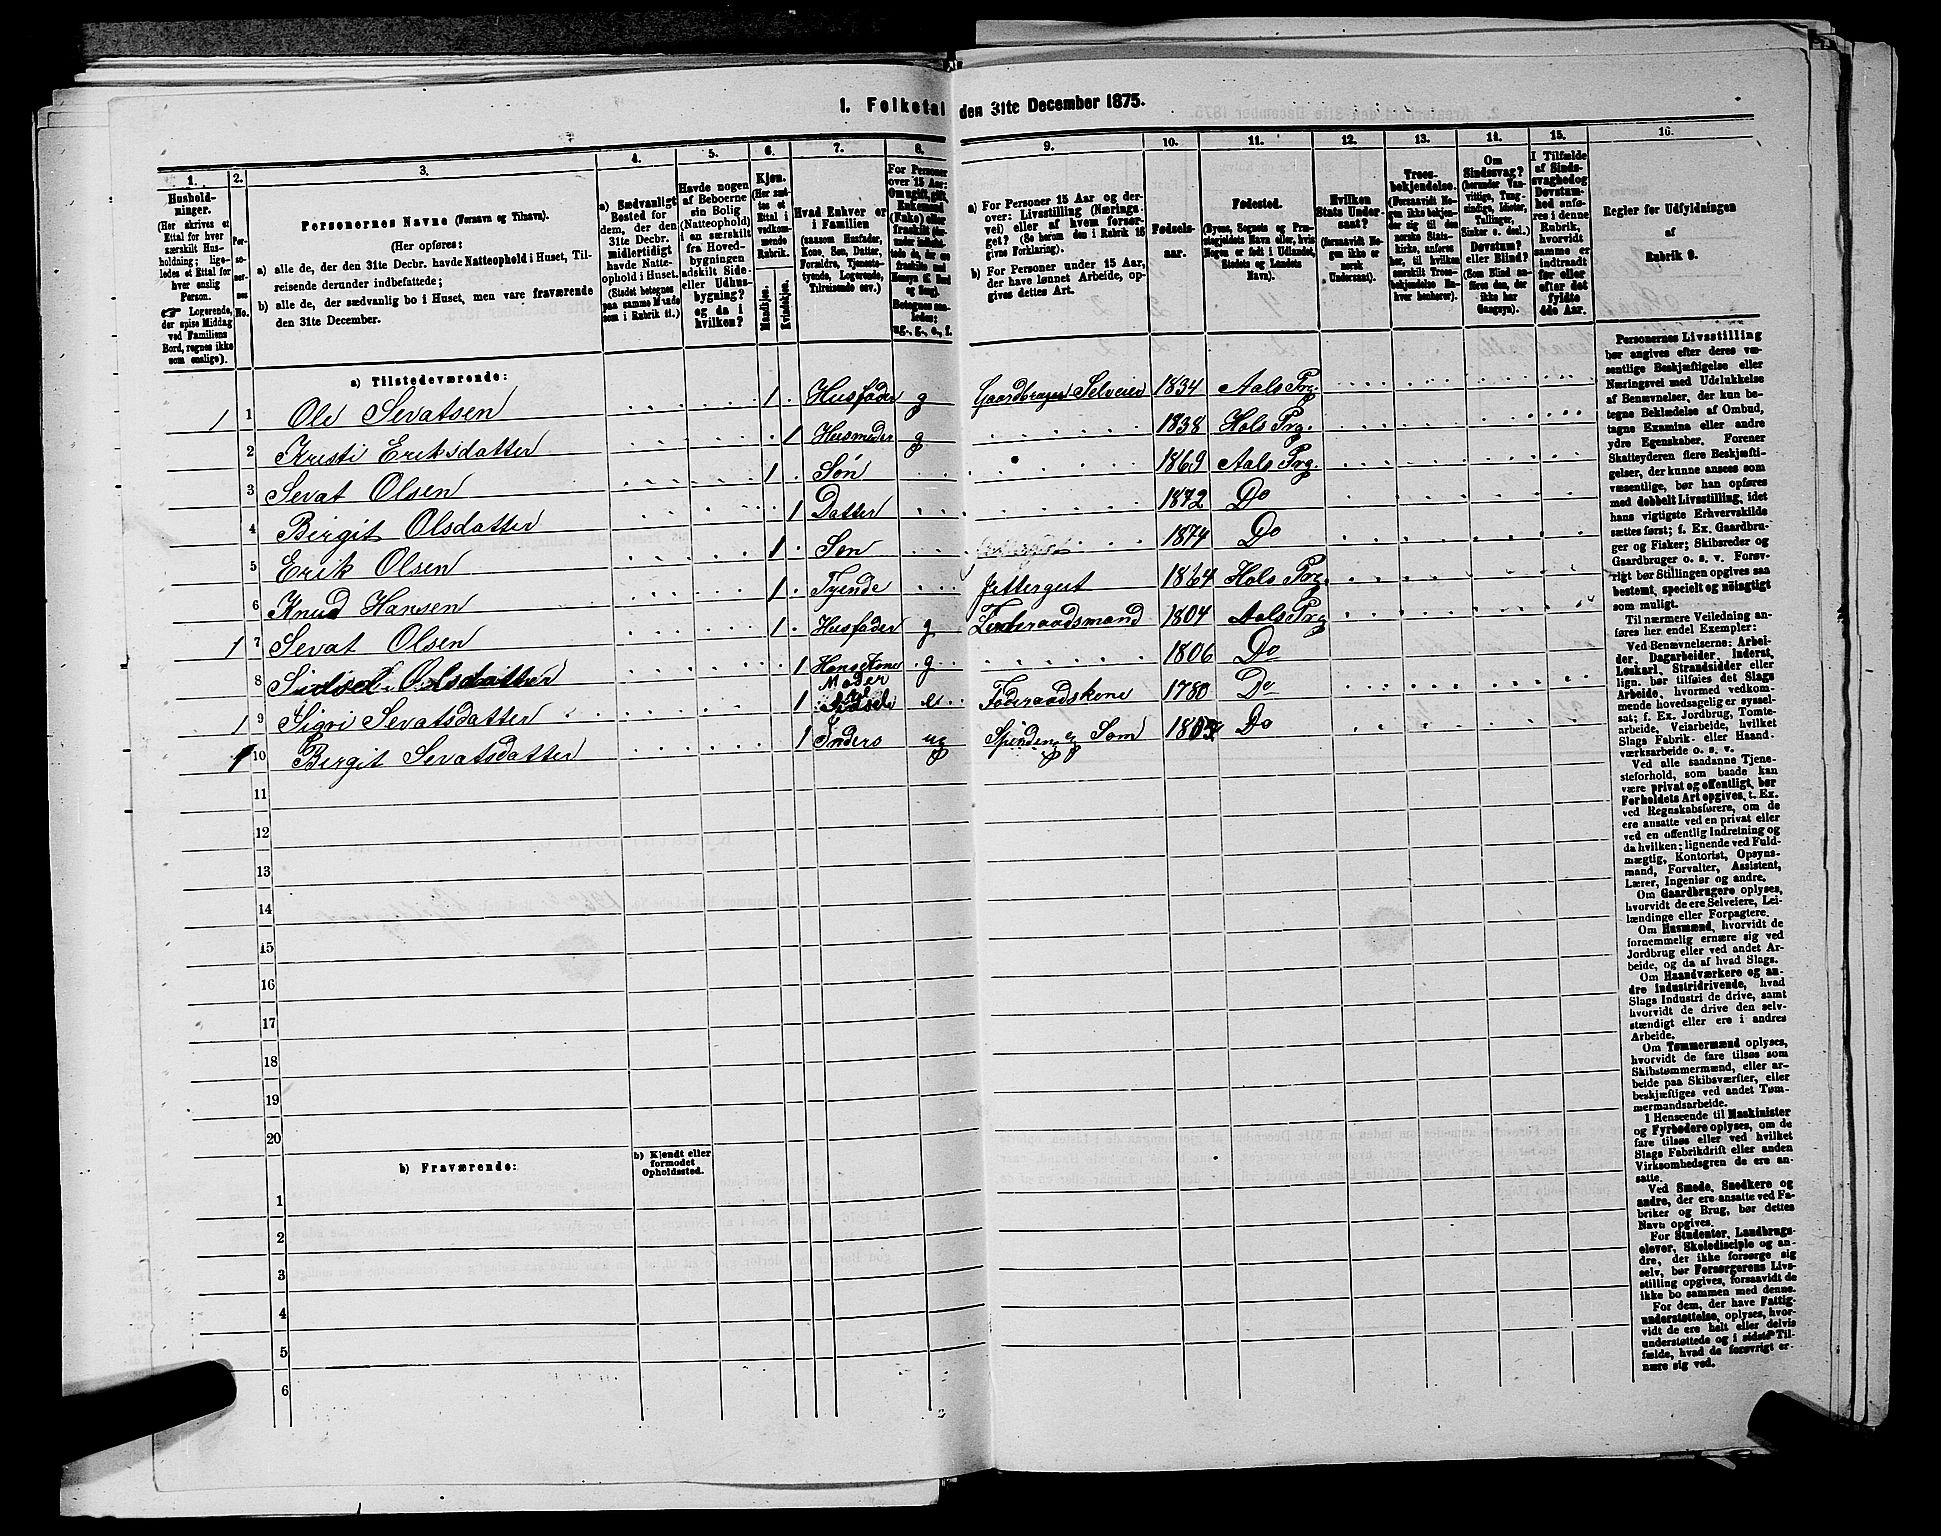 1. Folketal den 31te December 1875.
1. 2. 3. 4. 5. 6. 7. 8. 9. 10. 11. 12. 13. 14. 15. 16.
Husholdninger.
(Her skrives et
Ettal for hver
særskilt Hus-
holdning; lige-
ledes et Ettal for
hver enslig
Person.
☞ Logerende,
der spise Middag
ved Familiens
Bord, regnes ikke
som enslige).
Personernes No.
Personernes Navne (Fornavn og Tilnavn).
(Her opføres:
a) alle de, der den 31te Decbr. havde Natteophold i Huset, Til-
reisende derunder indbefattede;
b) alle de, der sædvanlig bo i Huset, men vare fraværende
den 31te December.
a) Sædvanligt
Bosted for
dem, der den
31te Decbr.
midlertidigt
havde Natte-
ophold i Huset.
(Stedet betegnes
paa samme Maade
som i Rubrik 11.)
Havde nogen
af Beboerne
sin Bolig
(Natteophold)
i en særskilt
fra Hoved-
bygningen
adskilt Side-
eller Udhus-
bygning?
og da i
hvilken?
Kjøn.
(Her sæt-
tes et
Ettal i
vedkom-
mende
Rubrik.
Mandkjøn.
Kvindekjøn.
Hvad Enhver er
i Familien
(saasom Husfader,
Kone, Søn, Datter,
Forældre, Tjeneste-
tyende, Logerende,
Tilreisende osv.)
For Personer
over 15 Aar:
Om ugift, gift,
Enkemand
(Enke) eller
fraskilt
ug., g., e., f.
a) For Personer 15 Aar og der-
over: Livsstilling (Nærings-
vei) eller af hvem forsør-
get? (Se herom den i Rubrik 16
givne Forklaring).
b) For Personer under 15 Aar,
der have lønnet Arbeide, op-
gives dettes Art.
Fødsels-
aar.
Fødested.
(Byens, Sognets og Præ-
stegjeldets Navn eller, hvis
Nogen er født i Udlandet,
Stedets og Landets
Navn).
Hvilken
Stats Under-
saat?
(forsaavidt No-
gen ikke er
norsk
Undersaat).
Troes-
bekjendelse.
(Forsaavidt No-
gen ikke bekjen-
der sig til den
norske Stats-
kirke, anføres
her, til hvilken
særskilt Troes-
bekjendelse En-
hver henhører).
Om
Sindssvag?
(herunder Van-
vittige, Tung-
sindige, Idioter,
Tullinger,
Sinker o. desl.)
Døvstum?
eller Blind?
(Som Blind an-
føres den, der
ikke har
Gangsyn).
I Tilfælde
af Sinds-
svaghed og
Døvstum-
hed anfø-
res i denne
Rubrik,
hvorvidt
samme er
indtraadt
før eller
efter det
fyldte
4de Aar.
Regler for Udfyldningen
af
Rubrik 9.
a) Tilstedeværende:
1 1 Ole Sevatsen 1 Husfader g Gaardbruger Selveier 1834 Aals Prg.
2 Kristi Eriksdatter 1 Husmoder g 1838 Hols Prg.
3 Sevat Olsen 1 Søn 1869 Aals Prg.
4 Birgit Olsdatter 1 Datter 1872 Do
5 Erik Olsen 1 Søn 1874 Do
6 Knud Hansen 1 Tyende Jettergut 1864 Hols Prg.
1 7 Sevat Olsen 1 Husfader g Foderaadsmand 1804 Aals Prg
8 Sidsel Olsdatter 1 Hans Kone g 1806 Do
Moder
1 9 Sigri Sevatsdatter 1 e Foderaadskone 1780 Do
1 10 Birgit Sevatsdatter 1 Inders ug Spinden og Søm Do
11
12
13
14
15
16
17
18
19
20
b) Fraværende:
b) Kjendt eller
formodet
Opholdssted.
1
2
3
4
5
6
Personernes Livsstilling
bør angives efter deres væ-
sentlige Beskjæftigelse eller
Næringsvei med Udelukkelse
af Benævnelser, der kun be-
tegne Beklædelse af Ombud,
tagne Examina eller andre
ydre Egenskaber. Forener
Skatteyderen flere Beskjæfti-
gelser, der kunne ansees som
væsentlige, bør han opføres
med dobbelt Livsstilling, idet
hans vigtigste Erhvervskilde
sættes først; f. Ex. Gaardbru-
ger og Fisker; Skibsreder og
Gaardbruger o. s. v. Forøv-
rigt bør Stillingen opgives saa
bestemt, specielt og nøiagtigt
som muligt.
Til nærmere Veiledning an-
føres her endel Exempler:
Ved Benævnelserne: Arbei-
der, Dagarbeider, Inderst,
Løskarl, Strandsidder eller
lign. bør tilføies det Slags
Arbeide, hvormed vedkom-
mende hovedsagelig er syssel-
sat; f. Ex. Jordbrug, Tomte-
arbeide, Veiarbeide, hvilket
Slags Fabrik- eller Haand-
værksarbeide o. s. v.
Ved alle saadanne Tjene-
steforhold, som baade kan
være privat og offentligt, bør
Forholdets Art opgives, t. Ex.
ved Regnskabsførere, om de
ere ansatte ved en privat eller
ved en offentlig Indretning og
da hvilken; lignende ved Fuld-
mægtig, Kontorist, Opsyns-
mand, Forvalter, Assistent,
Lærer, Ingeniør og andre.
Om Gaardbrugere oplyses,
hvorvidt de ere Selveiere, Lei-
lændinge eller Forpagtere.
Om Husmænd, hvorvidt de
fornemmelig ernære sig ved
Jordbrug eller ved andet Ar-
beide, og da af hvad Slags.
Om Haandværkere og an-
dre Industridrivende, hvad
Slags Industri de drive, samt
hvorvidt de drive den selv-
stændigt eller ere i andres
Arbeide.
Om Tømmermænd oplyses,
hvorvidt de fare tilsøs som
Skibstømmermænd, eller ar-
beide paa Skibsværfter, eller
beskjæftiges ved andet Tøm-
mermandsarbeide.
I Henseende til Maskinister
og Fyrbødere oplyses, om de
fare tilsøs eller ved hvilket
Slags Fabrikdrift eller anden
Virksomhedsgren de ere an-
satte.
Ved Smede, Snedkere og
andre, der ere ansatte ved Fa-
briker og Brug, bør dettes
Navn opgives.
For Studenter, Landbrugs-
elever, Skoledisciple og an-
dre, der ikke forsørge sig
selv, bør Forsørgerens Livs-
stilling opgives, forsaavidt de
ikke bo sammen med denne.
For dem, der have Fattig-
understøttelse, oplyses, hvor-
vidt de ere helt eller delvis
understøttede og i sidste Til-
fælde, hvad de forøvrigt er-
nære sig ved.